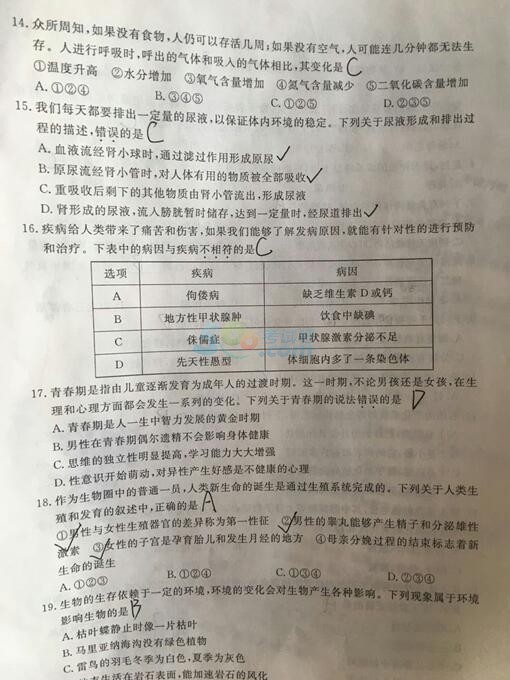 14. 众所周知,如果没有食物,人仍可以存活几周;如果没有空气,人可能连几分钟都无法生
存。人进行呼吸时,呼出的气体和吸入的气体相比,其变化是 C
①温度升高 ②水分增加 ③氧气含量增加 ④氮气含量减少 ⑤二氧化碳含量增加
A. ①②④ B. ③④⑤ C. ①②⑤ D. ②③⑤
15. 我们每天都要排出一定量的尿液,以保证体内环境的稳定。下列关于尿液形成和排出过
程的描述,错误的是 C
A. 血液流经肾小球时,通过滤过作用形成原尿 ✓
B. 原尿流经肾小管时,对人体有用的物质被全部吸收 ✓
C. 重吸收后剩下的其他物质由肾小管流出,形成尿液
D. 肾形成的尿液,流入膀胱暂时储存,达到一定量时,经尿道排出 ✓
16. 疾病给人类带来了痛苦和伤害,如果我们能够了解发病原因,就能有针对性的进行预防
和治疗。下表中的病因与疾病不相符的是 C
选项 疾病 病因
A 佝偻病 缺乏维生素 D 或钙
B 地方性甲状腺肿 饮食中缺碘
C 侏儒症 甲状腺激素分泌不足
D 先天性愚型 体细胞内多了一条染色体
17. 青春期是指由儿童逐渐发育为成年人的过渡时期。这一时期,不论男孩还是女孩,在生
理和心理方面都会发生一系列的变化。下列关于青春期的说法错误的是 D
A. 青春期是人一生中智力发展的黄金时期
B. 男性在青春期偶尔遗精不会影响身体健康
C. 思维的独立性明显提高,学习能力大大增强
D. 性意识开始萌动,对异性产生好感是不健康的心理
18. 作为生物圈中的普通一员,人类新生命的诞生是通过生殖系统完成的。下列关于人类生
殖和发育的叙述中,正确的是 A
①男性与女性生殖器官的差异称为第一性征 ②男性的睾丸能够产生精子和分泌雄性
激素 ③女性的子宫是孕育胎儿和发生月经的地方 ④母亲分娩过程的结束标志着新
生命的诞生
A. ①②③ B. ①②④ C. ①③④ D. ②③④
19. 生物的生存依赖于一定的环境,环境的变化会对生物产生各种影响。下列现象属于环境
影响生物的是 B
A. 枯叶蝶静止时像一片枯叶
B. 马里亚纳海沟没有绿色植物
C. 雷鸟的羽毛冬季为白色,夏季为灰色
生活在岩石表面,能加速岩石的风化